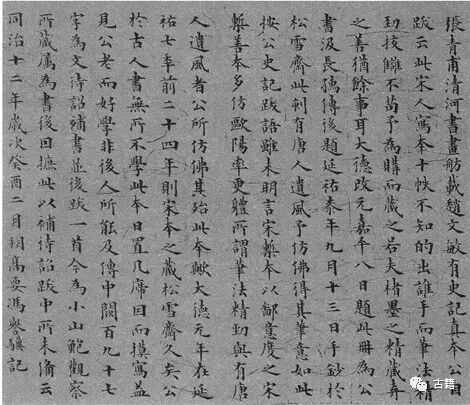 張青甫清河書畫舫載趙文敏有史記真本公自
跋云此宋人寫本十帙不知的出誰手而筆法精
勁挍讎不苟予為購而藏之若夫楮墨之精藏弆
之善猶餘事耳大德改元嘉平八日題此冊為公
書汲長孺傳後題延祐柒年九月十三日手鈔於
松雪齋此刻有唐人遺風予仿佛得其筆意如此
按公史記跋語雖未明言宋槧本以鄙意度之宋
槧善本多仿歐陽率更體所謂筆法精勁與有唐
人遺風者公所仿佛其殆此本歟大德元年在延
祐七年前二十四年則宋本之藏松雪齋久矣公
於古人書無所不學此本日置几席因而摸寫益
見公老而好學非後人所能及傳中闕百九十七
字為文待詔補書並後跋一首今為小山鮑觀察
所藏屬為書後因摭此以補待詔跋中所未備云
同治十二年歲次癸酉二月朔高要馮譽驥記
古籍